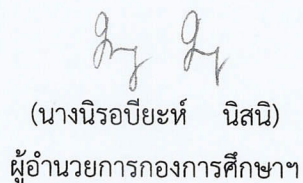 (นางนิรอบียะห์ นิสนิ)
ผู้อำนวยการกองการศึกษาฯ